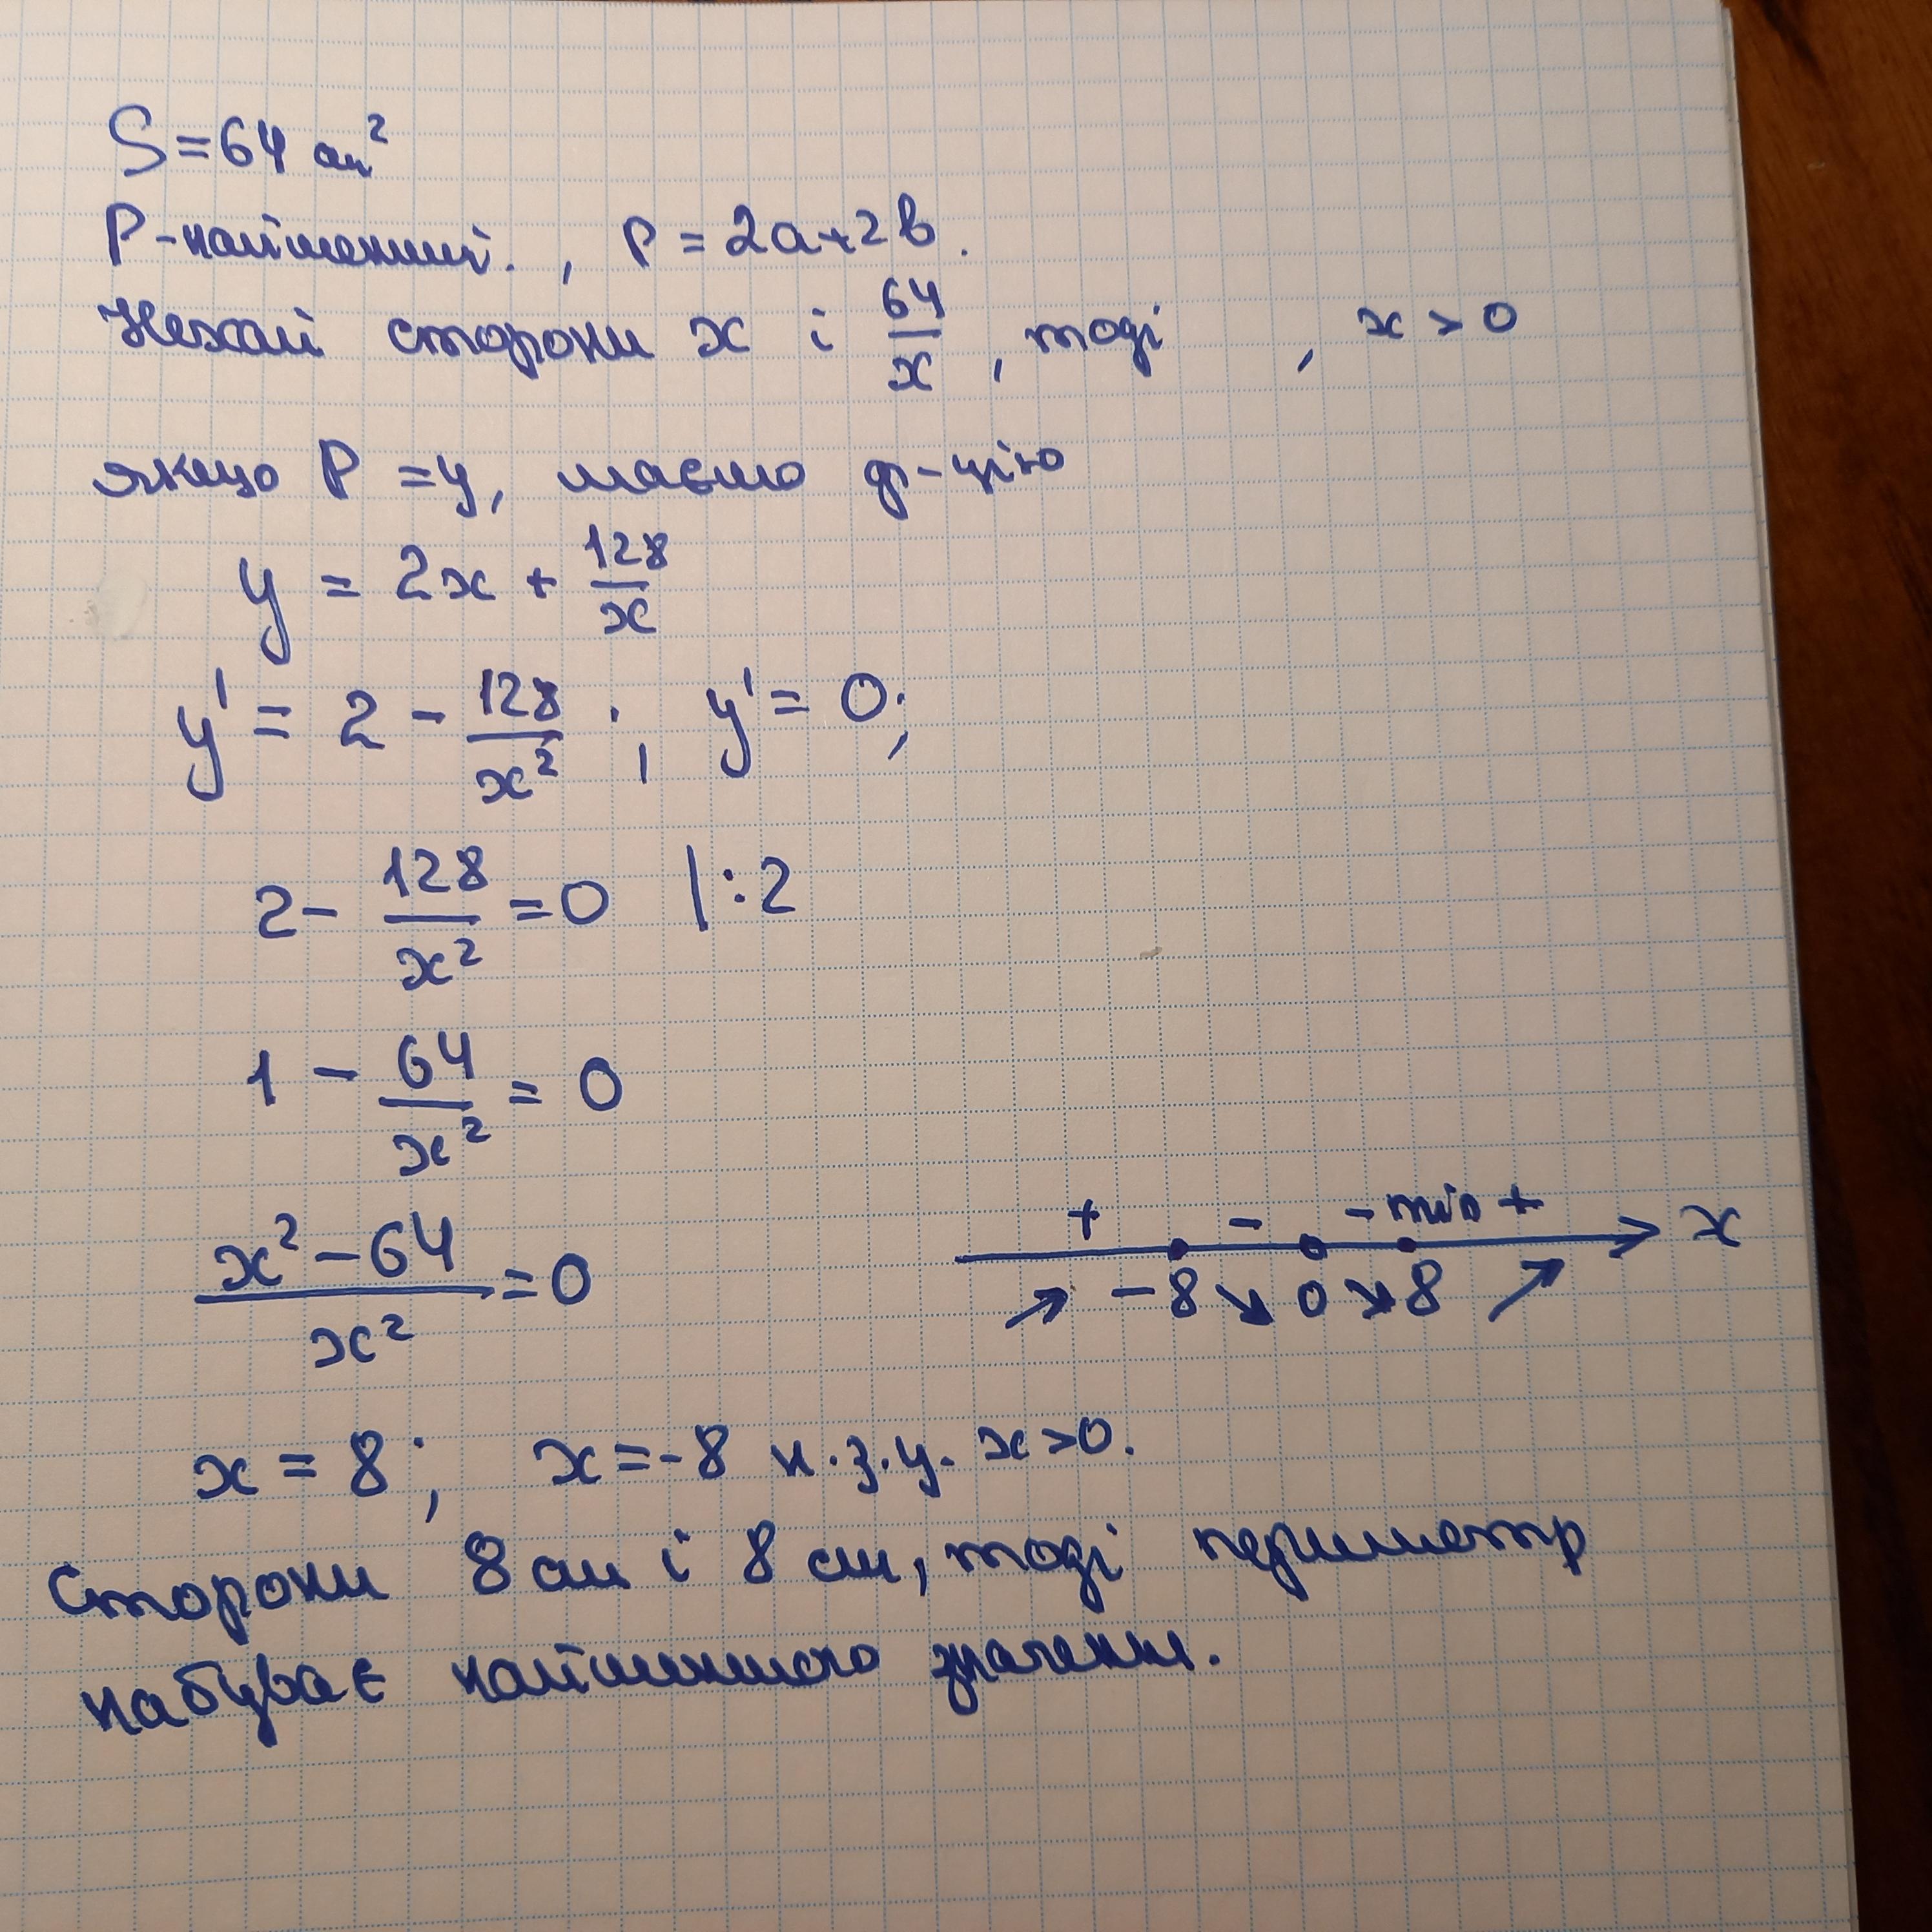 S = 64 см²
P - найменший. , P = 2a + 2b.
Нехай сторони x і 64/x , тоді , x > 0
якщо P = y, маємо ф-цію
y = 2x + 128/x
y' = 2 - 128/x² ; y' = 0;
2 - 128/x² = 0 | : 2
1 - 64/x² = 0
(x² - 64)/x² = 0
+ - - min + x
↗ -8 ↘ 0 ↘ 8 ↗
x = 8 ; x = -8 н.з.у. x > 0.
Сторони 8 см і 8 см, тоді периметр
набуває найменшого значення.